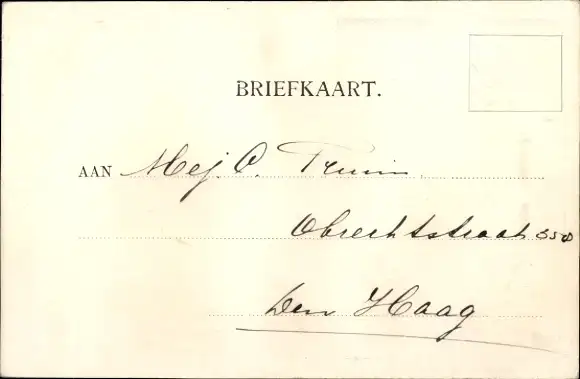 BRIEFKAART.
AAN Mej. C. Fruin.
Obrechtstraat 358
Den Haag